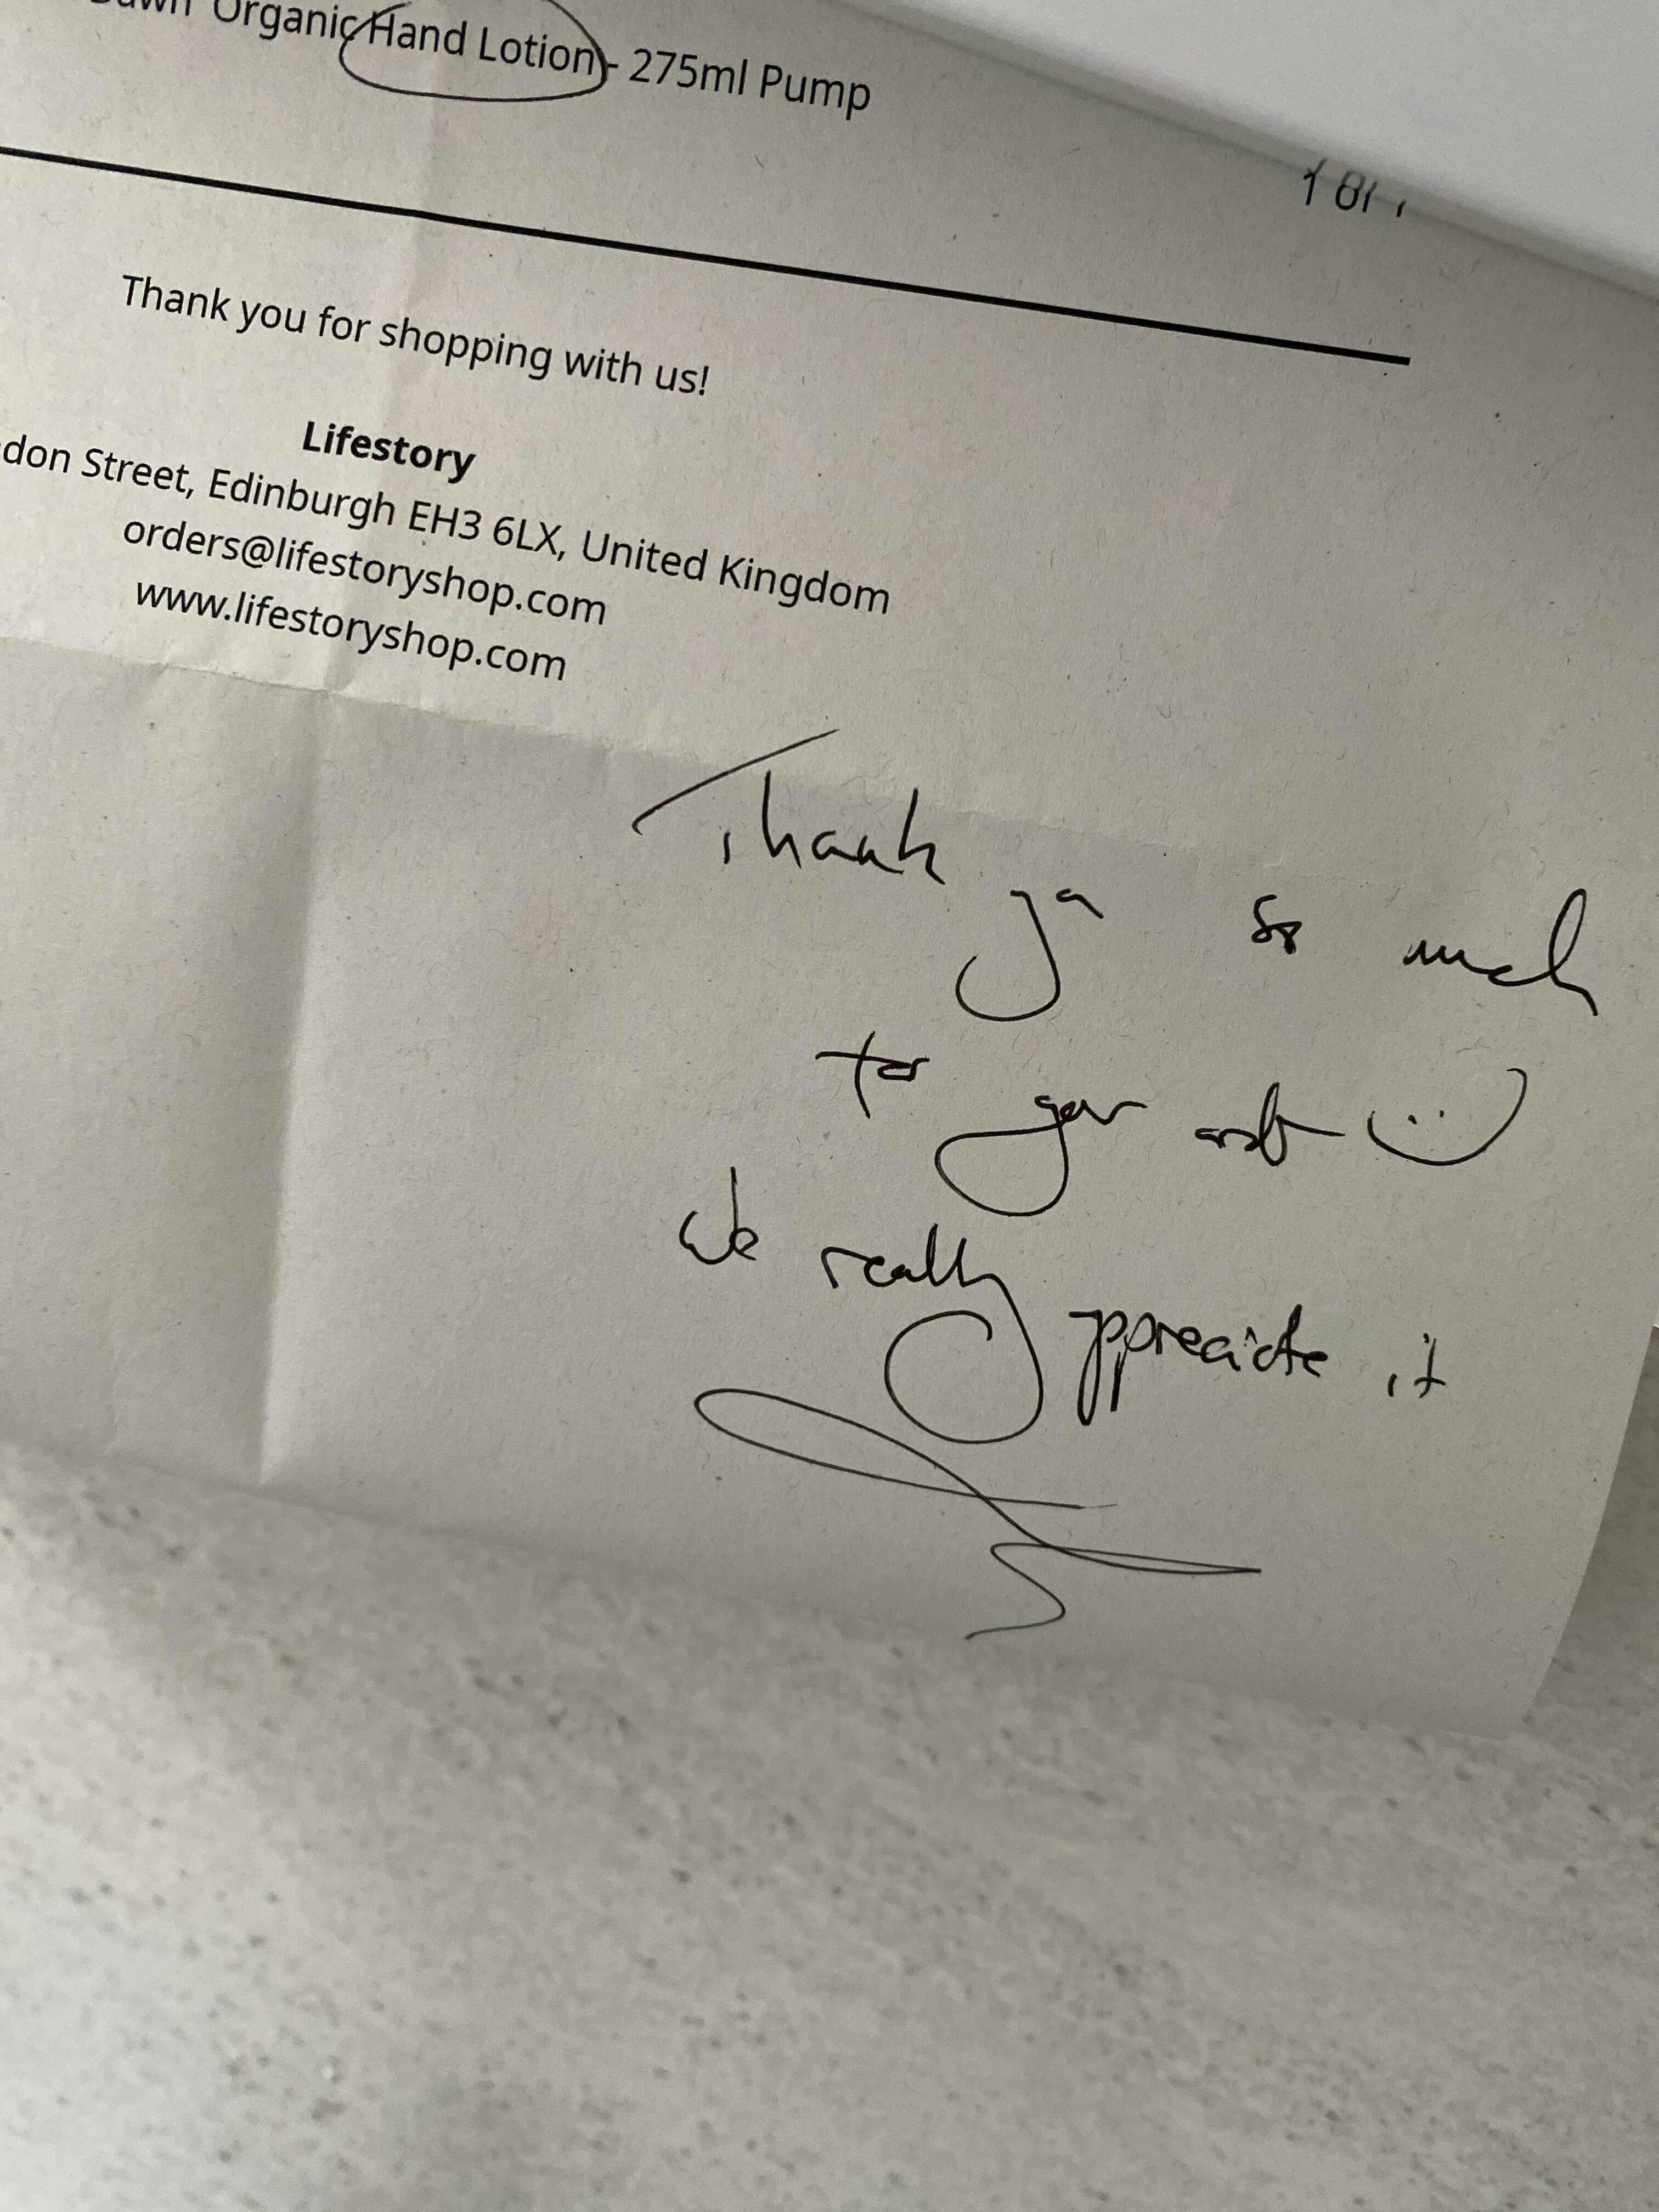 Dawn Organic Hand Lotion - 275ml Pump
1 of 1
Thank you for shopping with us!
Lifestory
don Street, Edinburgh EH3 6LX, United Kingdom
orders@lifestoryshop.com
www.lifestoryshop.com
Thank you so much
for your order :)
We really appreciate it